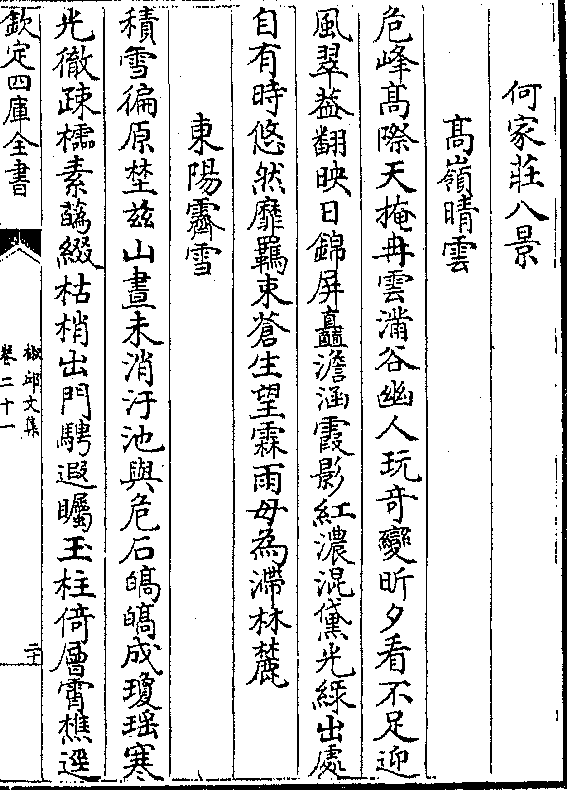 何家莊八景
高嶺晴雲
危峰髙際天掩冉雲滿谷幽人玩竒變昕夕看不足迎
風翠葢翻映日錦屏矗澹涵霞影紅濃混黛光緑出處
自有時悠然靡羈束蒼生望霖雨毋為滯林麓
東陽霽雪
積雪徧原埜兹山晝未消汙池與危石皜皜成瓊瑶寒
光徹疎櫺素蘤綴枯梢出門騁遐矚玉柱倚層霄樵逕
欽定四庫全書
椒邱文集
卷二十一
二十